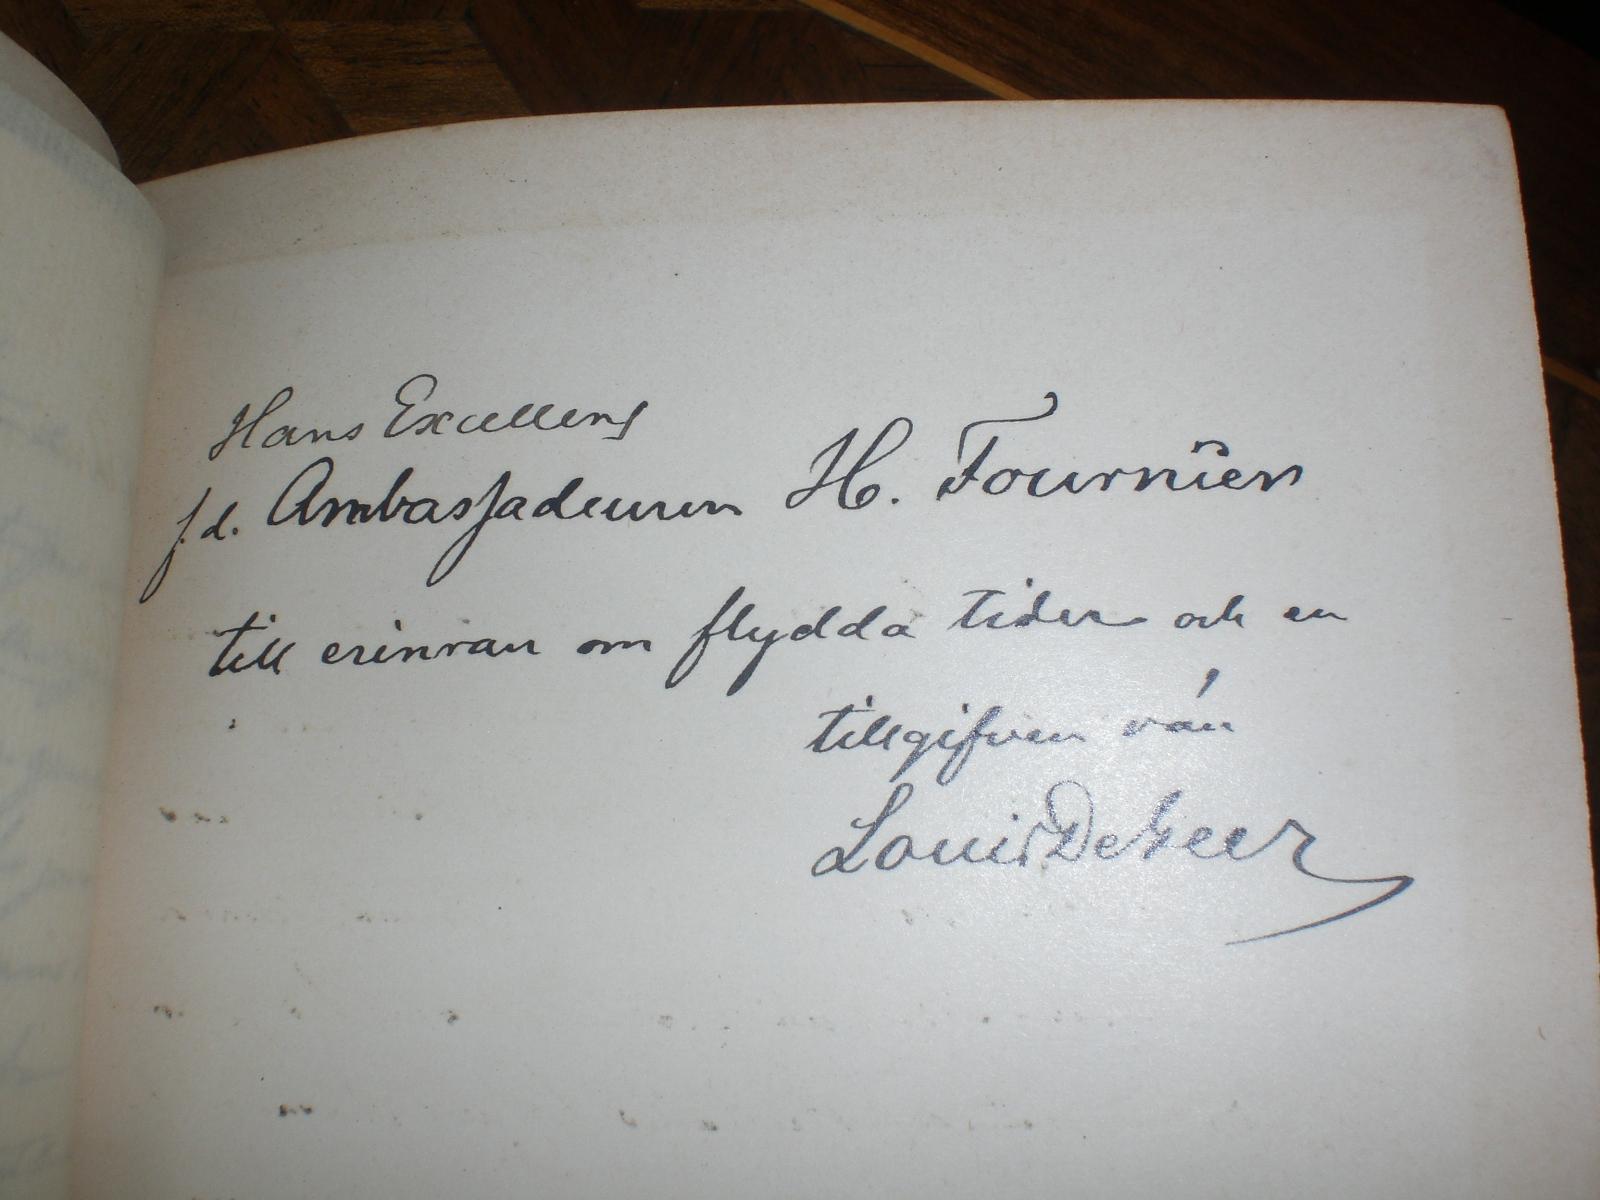 Hans Excellens
f.d. Ambassadeuren H. Fournier
till erinran om flydda tider och en
tillgifven vän
Louis De Geer